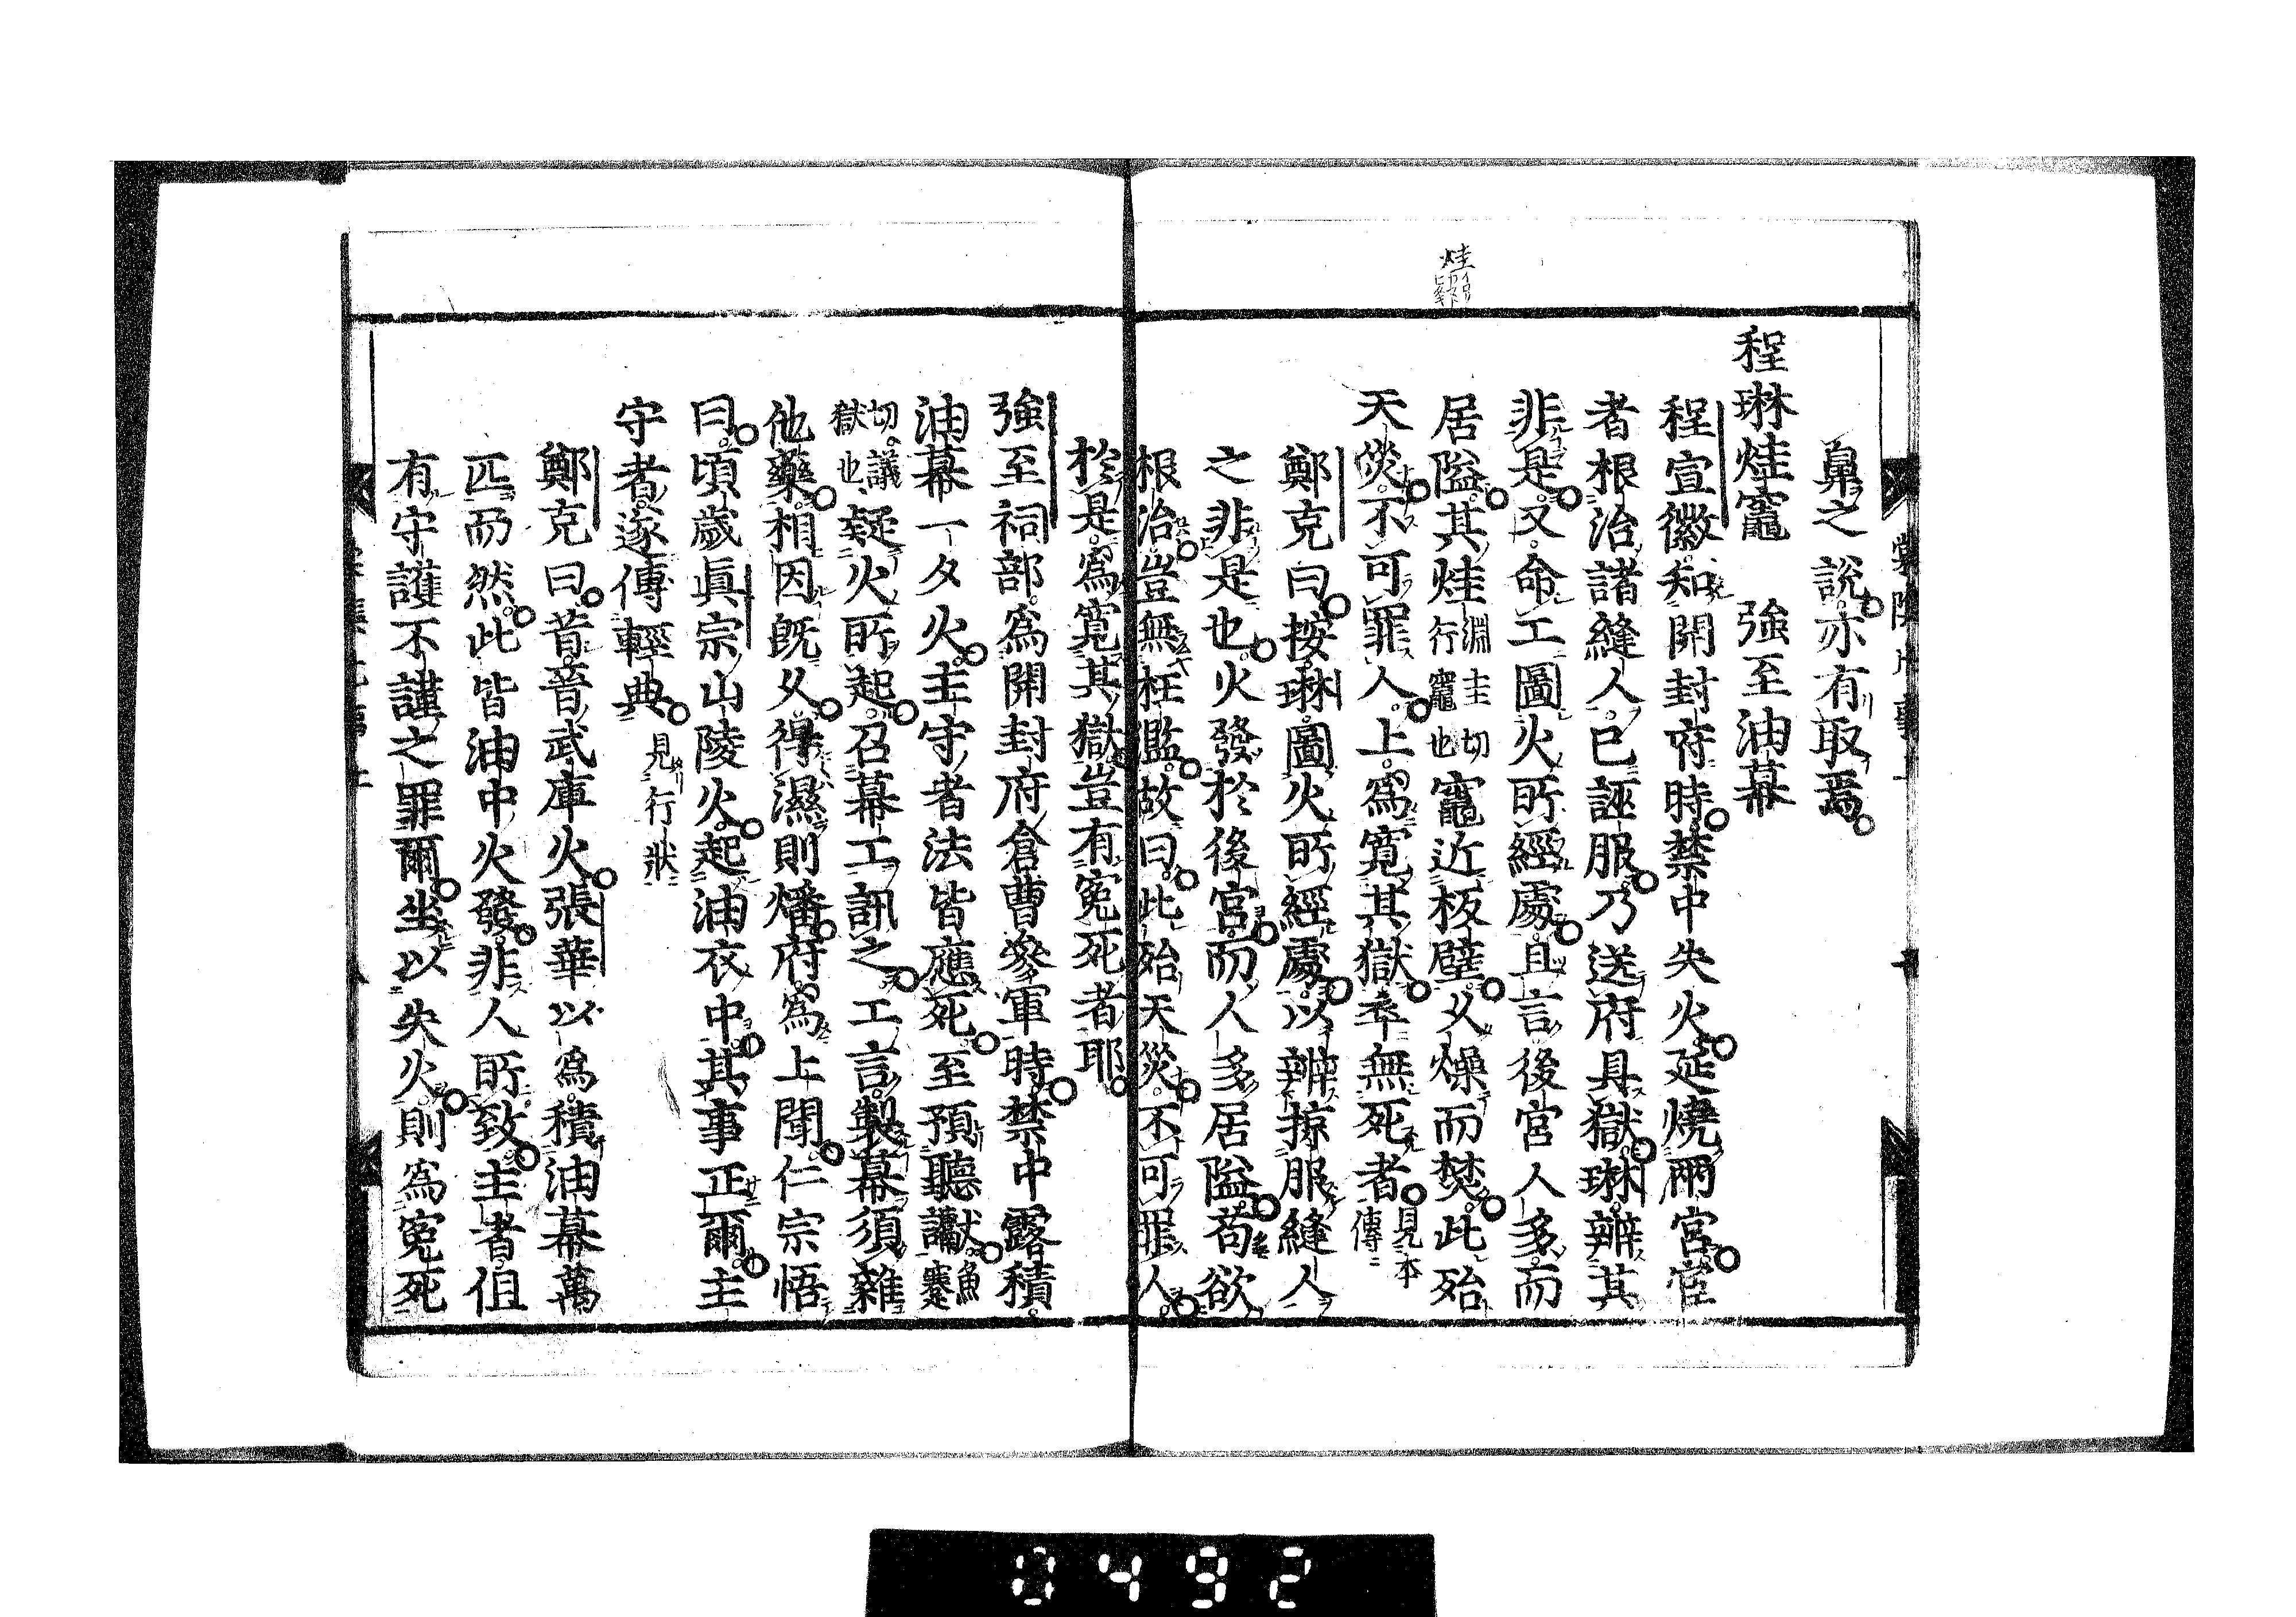 鼻之說亦有取焉
程琳烓竈　強至油幕
程宣徽知開封府時禁中失火延燒兩宮宦
者根治諸縫人已誣服乃送府具獄琳辨其
非是又命工圖火所經處且言後宮人多而
居隘其烓淵圭切行竈也竈近板壁久燥而焚此殆
天災不可罪人上爲寬其獄卒無死者見本傳
鄭克曰按琳圖火所經處以辨掠服縫人
之非是也火發於後宮而人多居隘苟欲
根治豈無枉濫故曰此殆天災不可罪人
於是爲寬其獄豈有冤死者耶
強至祠部爲開封府倉曹參軍時禁中露積
油幕一夕火主守者法皆應死至預聽讞魚蹇
切議獄也疑火所起召幕工訊之工言製幕須雜
他藥相因旣久得濕則燔府爲上聞仁宗悟
曰頃歲眞宗山陵火起油衣中其事正爾主
守者遂傳輕典見行狀
鄭克曰昔晉武庫火張華以爲積油幕萬
匹而然此皆油中火發非人所致主者但
有守護不謹之罪爾坐以失火則爲冤死
烓
0492